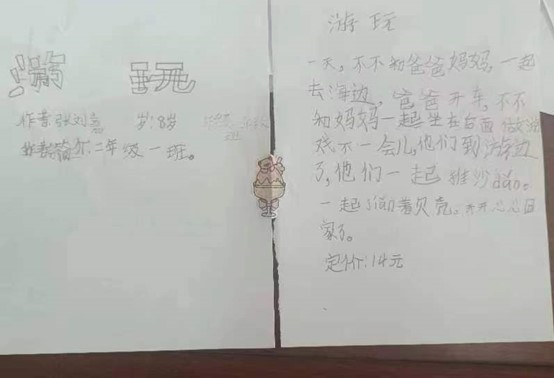 游玩
作者张刘嘉 岁:8岁
二年级一班。
游玩
一天,不不和爸爸妈妈,一起
去海边,爸爸开车,不不
和妈妈一起坐在后面做游
戏不一会儿,他们到海边
了,他们一起堆沙
一起 着贝壳。开开心心回
家了。
定价:14元